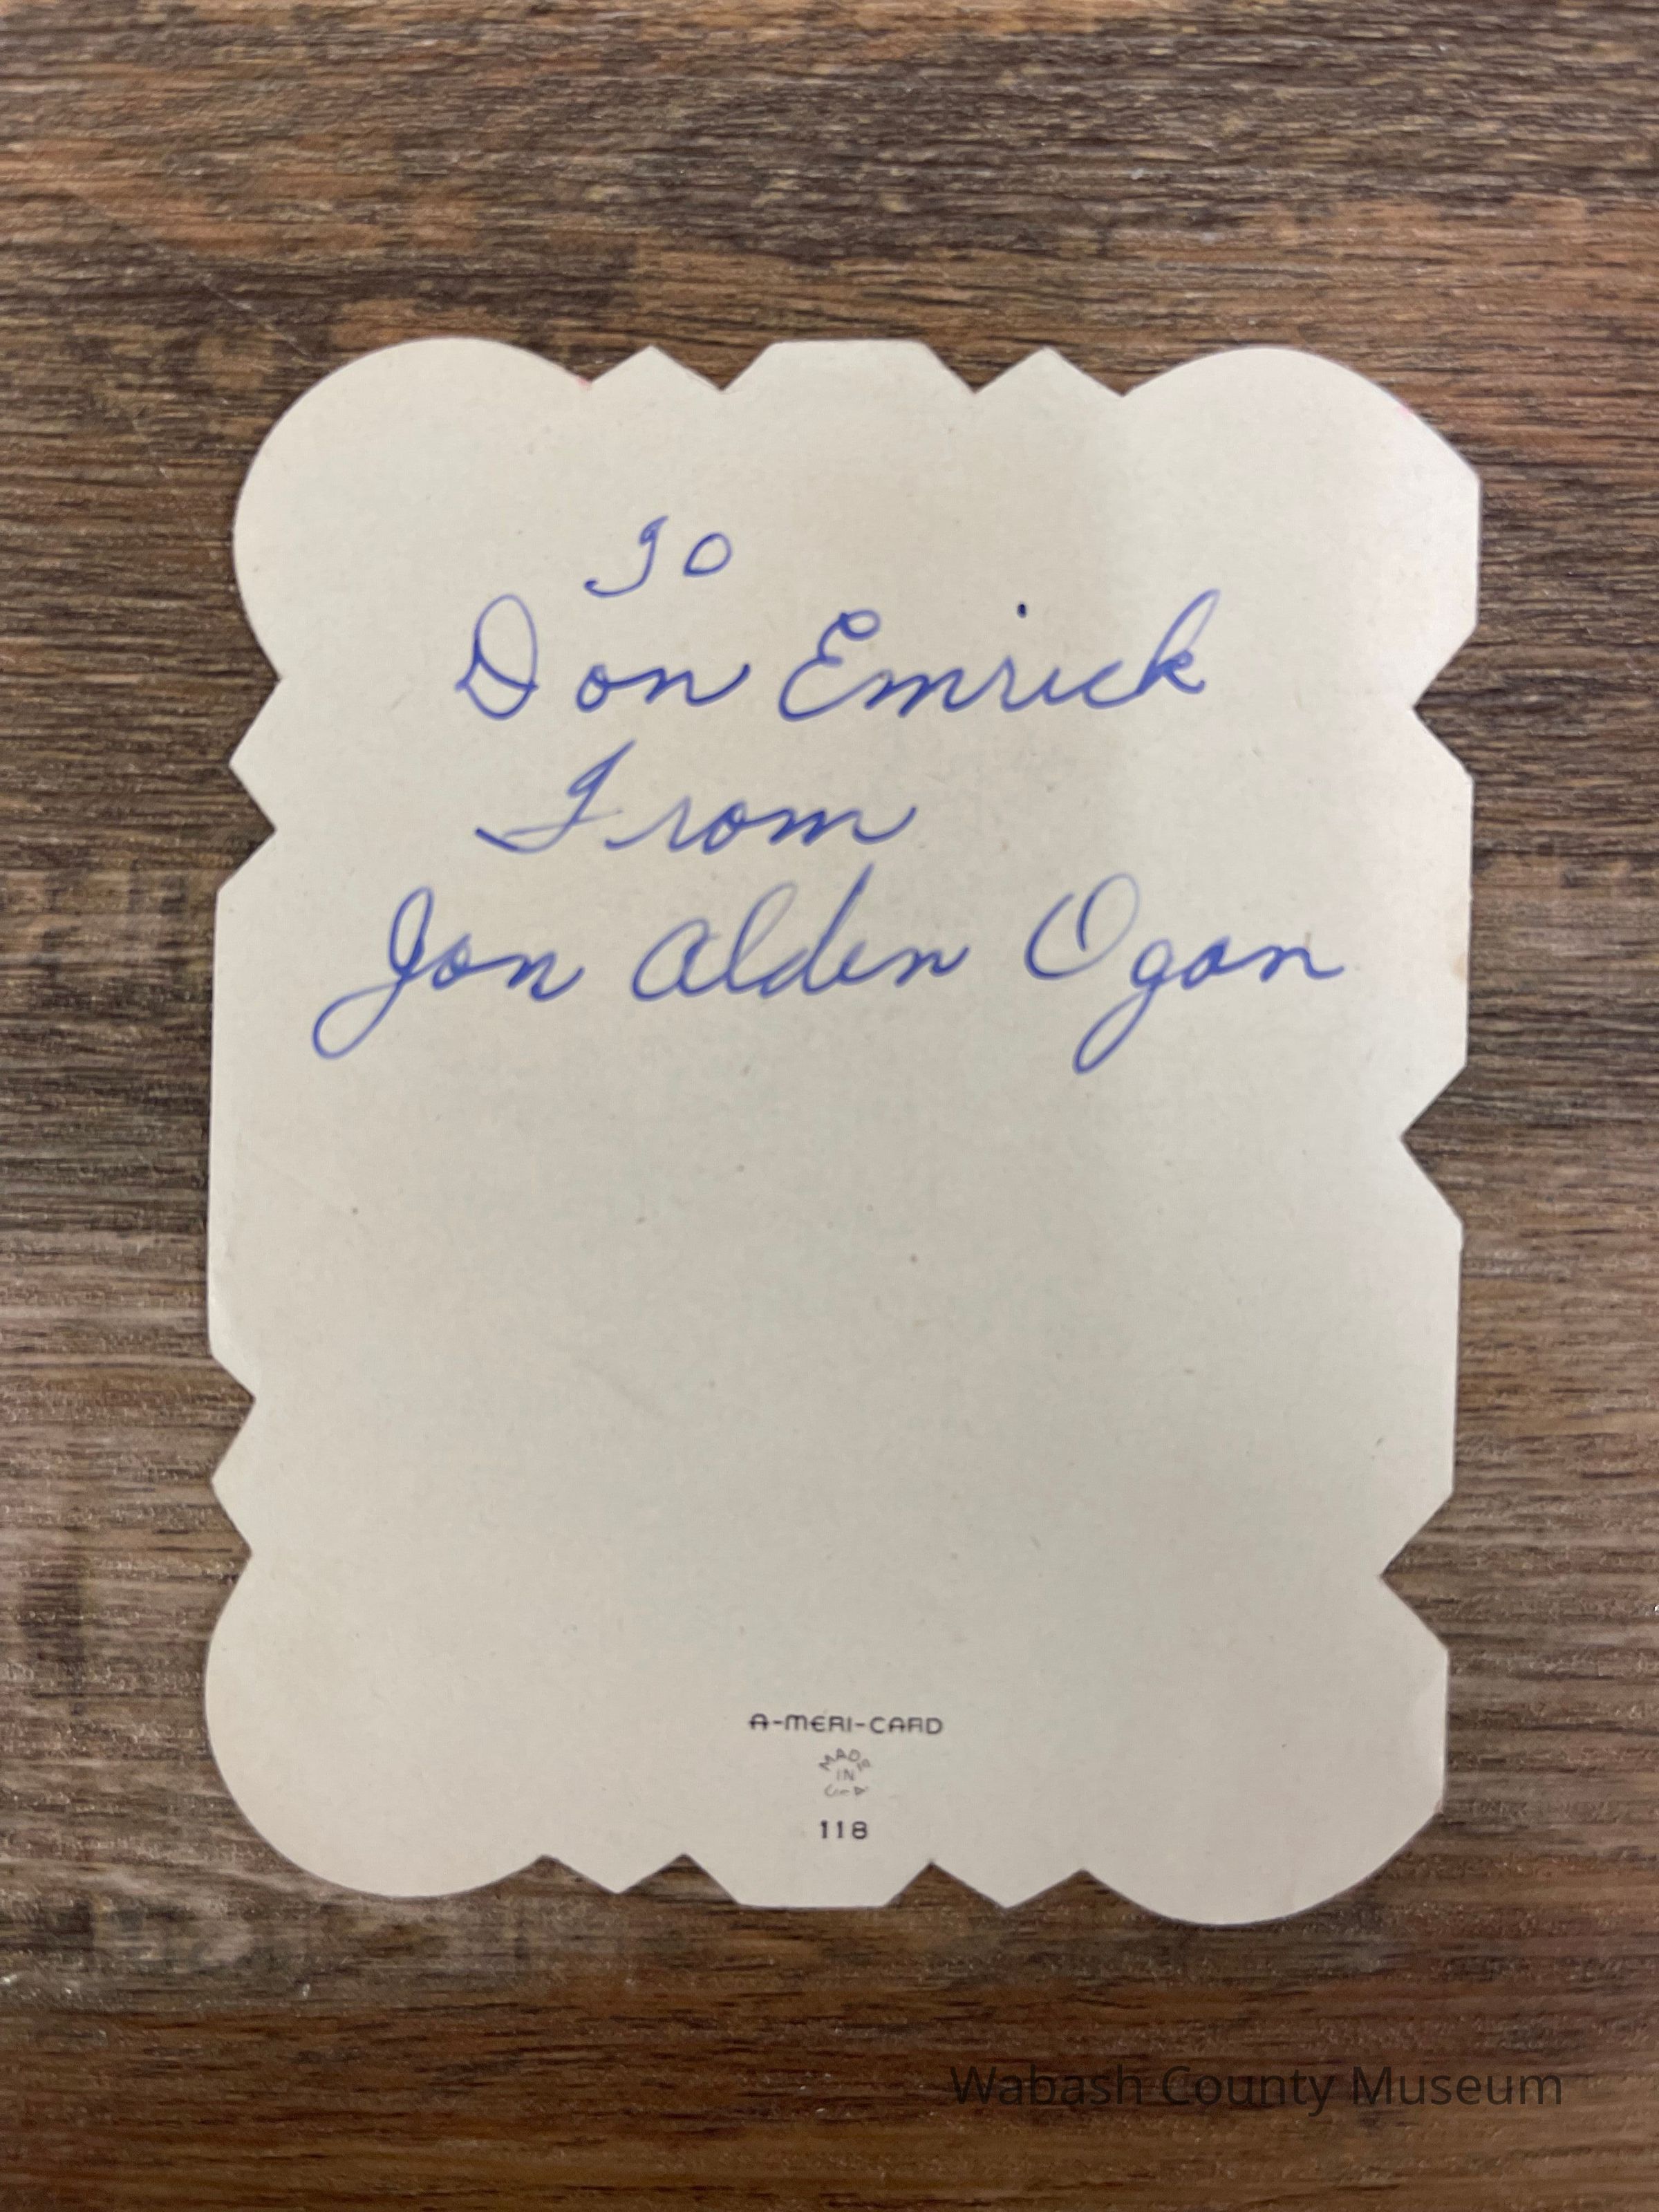 To
Don Emrick
From
Jon Alden Ogan
A-MERI-CARD
MADE
IN
USA
118
Wabash County Museum